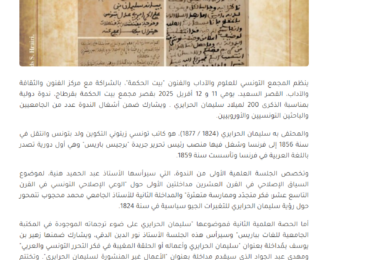 ينظم المجمع التونسي للعلوم والآداب والفنون "بيت الحكمة"، بالشراكة مع مركز الفنون والثقافة
والآداب، القصر السعيد، يومي 11 و 12 أفريل 2025 بقصر مجمع بيت الحكمة بقرطاج، ندوة دولية
بمناسبة الذكرى 200 لميلاد سليمان الحرايري ، ويشارك ضمن أشغال الندوة عدد من الجامعيين
والباحثين التونسيين والأوروبيين.
والمحتفى به سليمان الحرايري (1824 / 1877)، هو كاتب تونسي زيتوني التكوين ولد بتونس وانتقل في
سنة 1856 إلى فرنسا وشغل فيها منصب رئيس تحرير جريدة "برجيس باريس" وهي أول دورية تصدر
باللغة العربية في فرنسا وتأسست سنة 1859.
وتخصص الجلسة العلمية الأولى من الندوة، التي سيرأسها الأستاذ عبد الحميد هنية، لموضوع
السياق الإصلاحي في القرن العشرين مداخلتين الأولى حول "الوعي الإصلاحي التونسي في القرن
التاسع عشر: فكر متجدّد وممارسة متعثرة" والمداخلة الثانية للأستاذ الجامعي محمد محجوب تتمحور
حول رؤية سليمان الحرايري للتغيرات الجيو سياسية في سنة 1824.
أما الحصة العلمية الثانية فموضوعها "سليمان الحرايري على ضوء ترجماته الموجودة في المكتبة
الجامعية للغات بباريس" وسيرأس هذه الجلسة الأستاذ نور الدين الدقي، ويشارك ضمنها زهير بن
يوسف بمداخلة بعنوان "سليمان الحرايري وأعماله أو الحلقة المغيبة في فكر التحرر التونسي والعربي"
ومهدي عبد الجواد الذي سيقدم مداخلة بعنوان "الأعمال غير المنشورة لسليمان الحرايري"، وتختتم